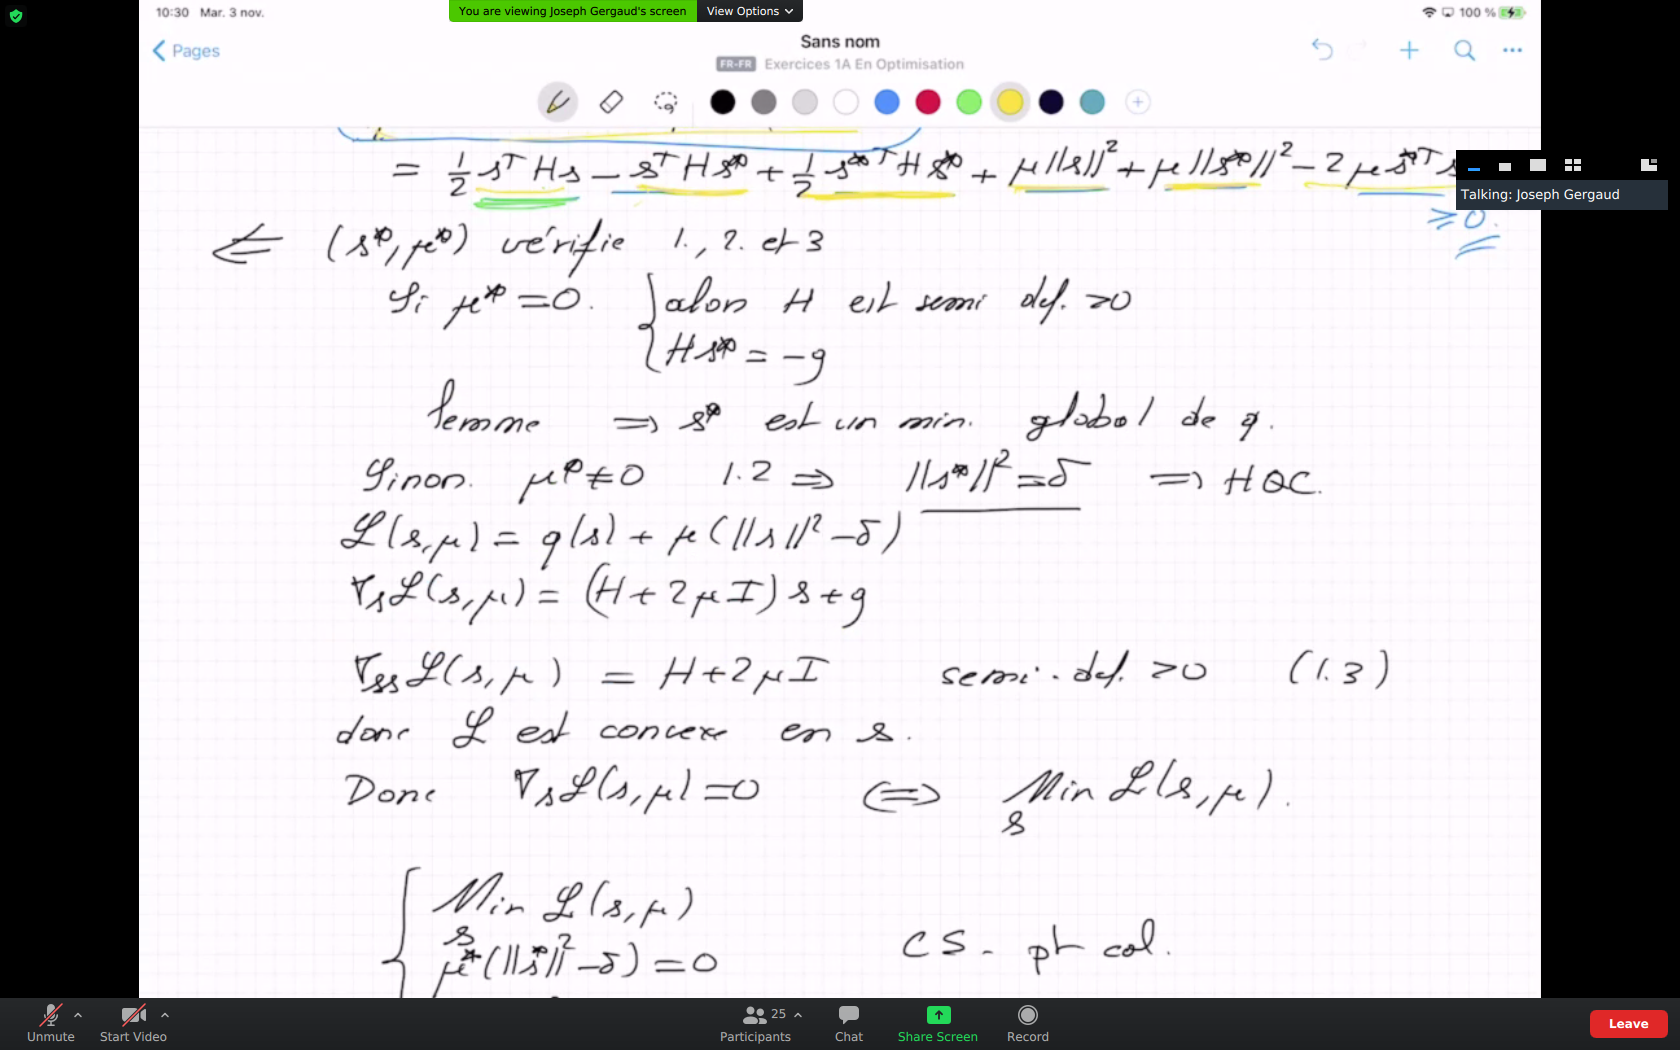 10:30 Mar. 3 nov.
You are viewing Joseph Gergaud's screen View Options
100 %
Pages
Sans nom
FR-FR Exercices 1A En Optimisation
Talking: Joseph Gergaud
= 1/2 s^T H s - s^T H s* + 1/2 s*^T H s* + μ||s||² + μ||s*||² - 2 μ s*^T s
≥ 0.
⇐ (s*, μ*) vérifie 1., 2. et 3
Si μ* = 0. { alors H est semi def. >0
H s* = -g
lemme ⇒ s* est un min. global de q.
Sinon. μ* ≠ 0 1.2 ⇒ ||s*||² = δ ⇒ HQC.
ℒ(s,μ) = q(s) + μ(||s||² - δ)
∇sℒ(s,μ) = (H + 2μI) s + g
∇ssℒ(s,μ) = H + 2μI semi-def. >0 (1.3)
donc ℒ est convexe en s.
Donc ∇sℒ(s,μ) = 0 ⇔ Min ℒ(s,μ).
s
{ Min ℒ(s,μ)
s
μ*(||s*||² - δ) = 0 CS. pt col.
Unmute
Start Video
25
Participants
Chat
Share Screen
Record
Leave